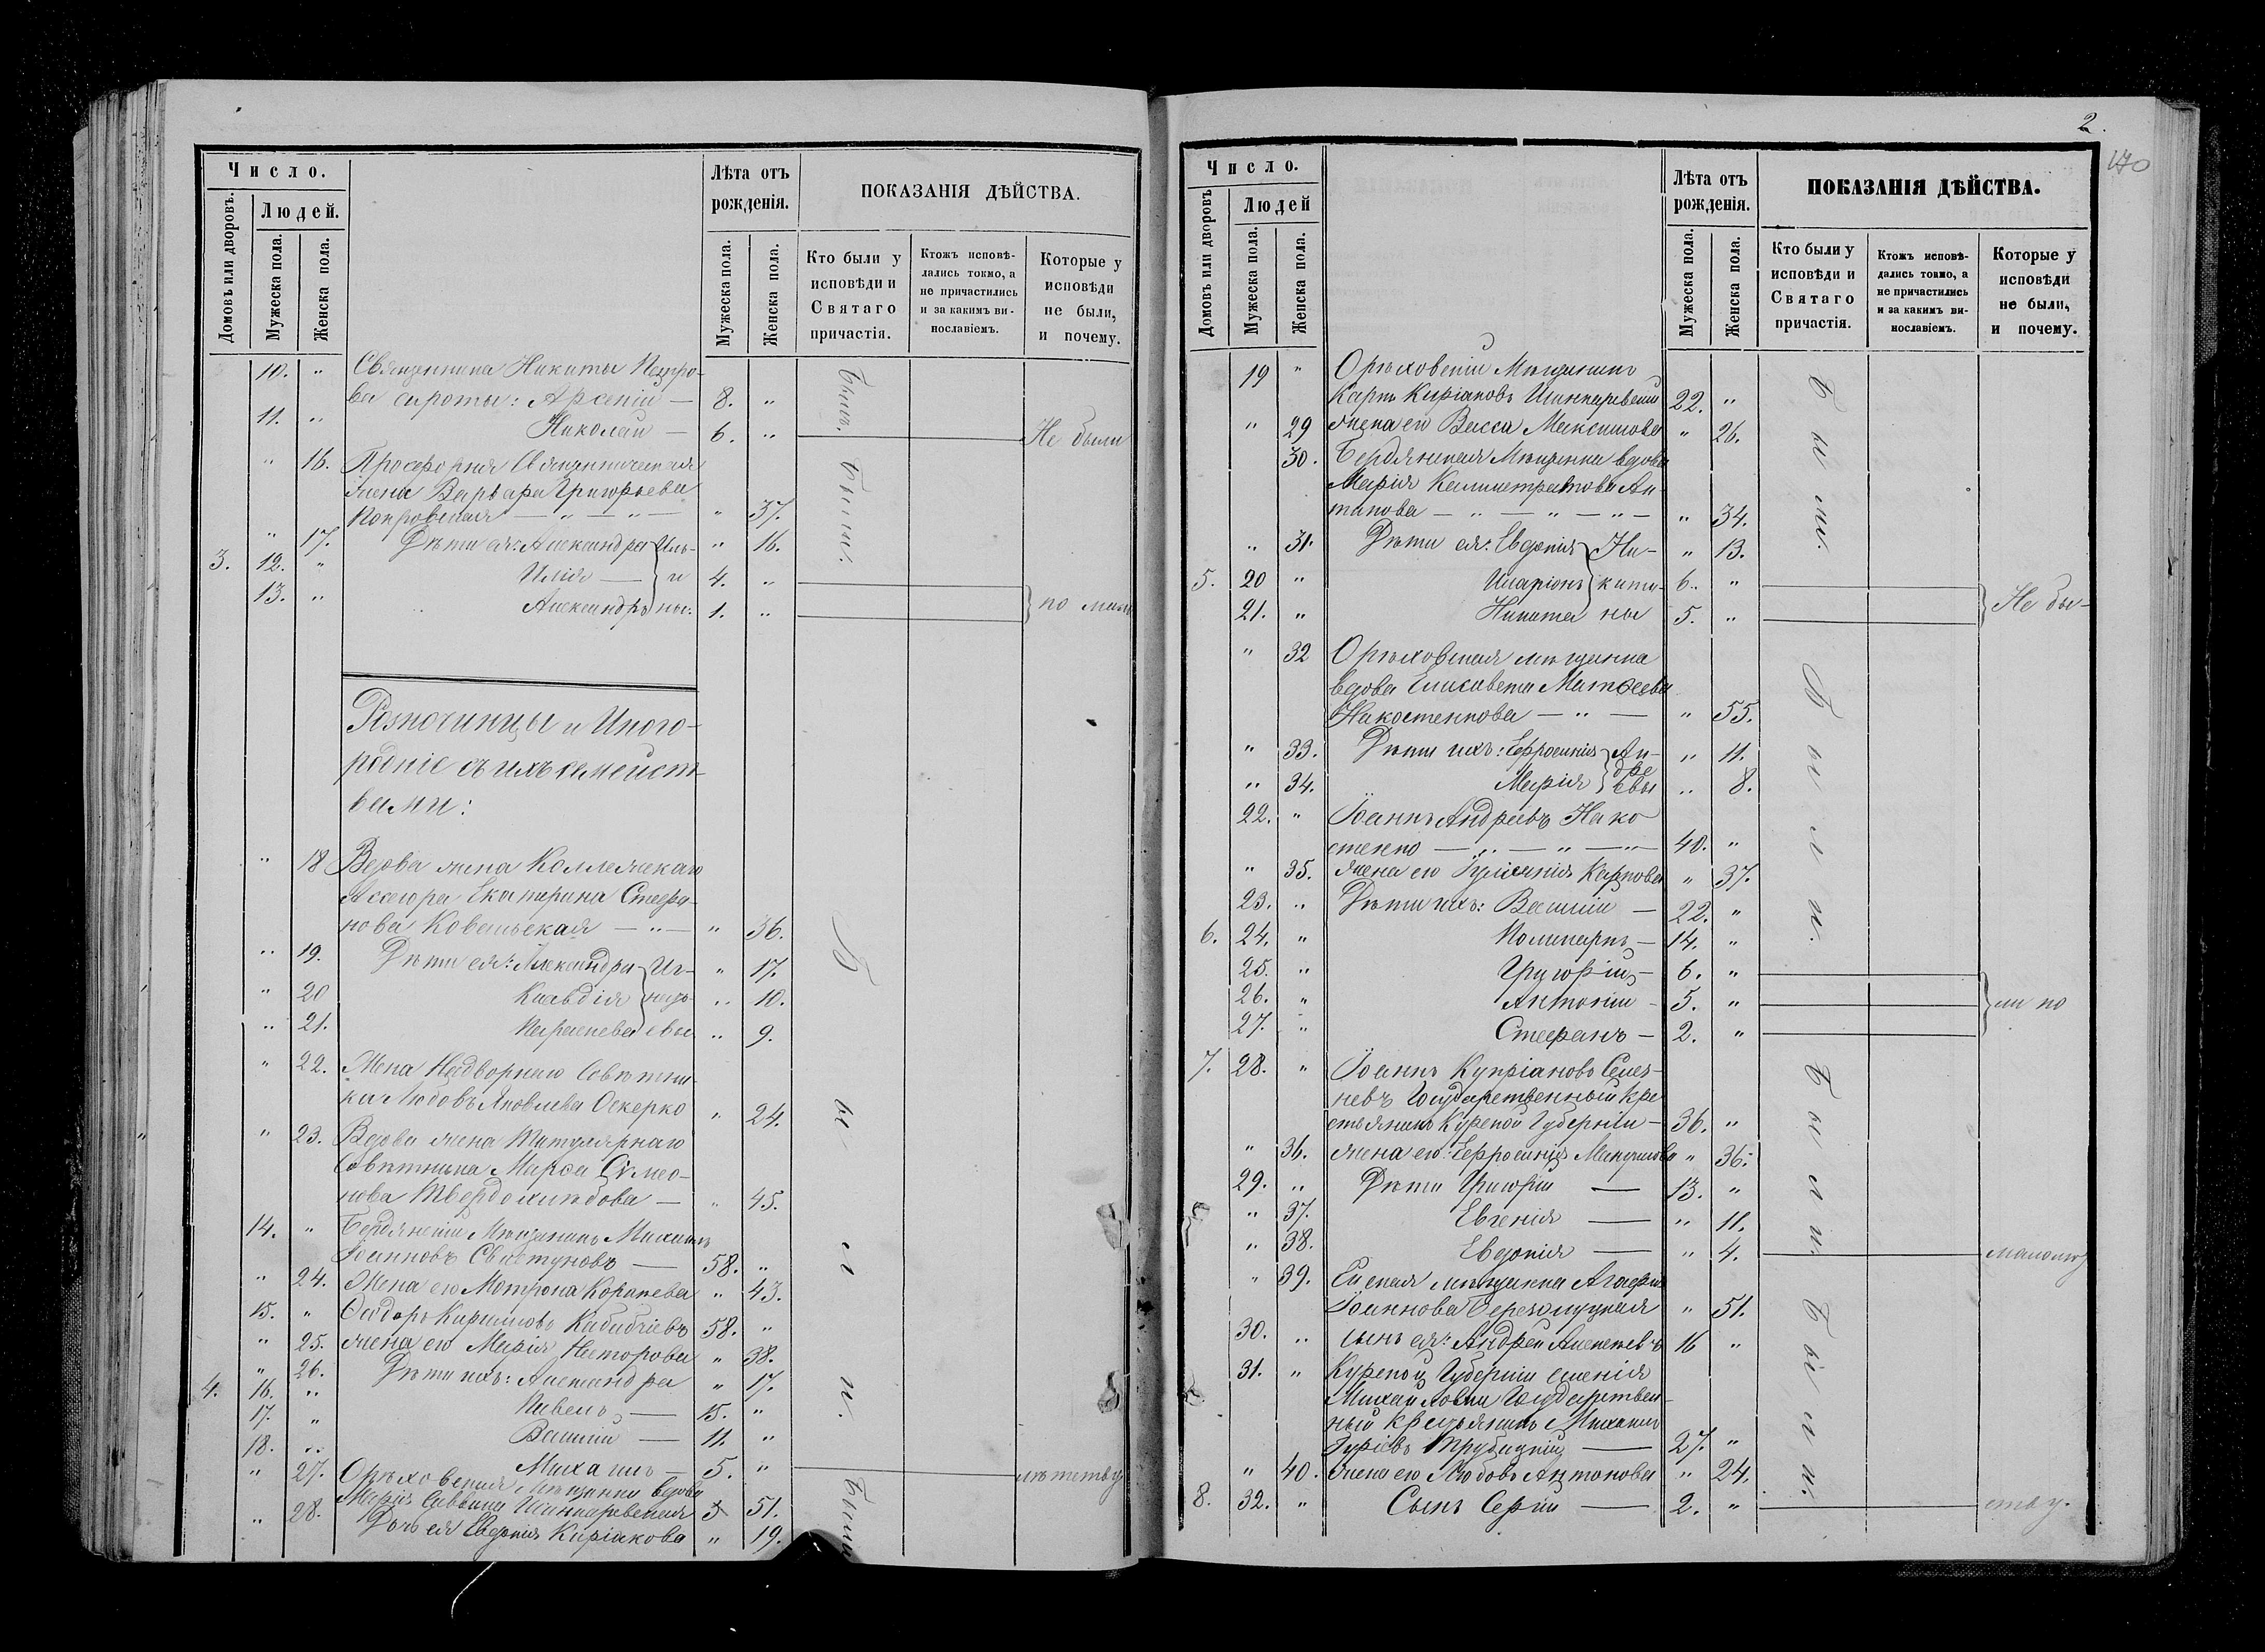 Число.
Лѣта отъ рожденія.
ПОКАЗАНІЯ ДѢЙСТВА.
Домовъ или дворовъ.
Людей.
Мужеска пола.
Женска пола.
Мужеска пола.
Женска пола.
Кто были у исповѣди и Святаго причастія.
Ктожъ исповѣ-
дались токмо, а
не причастились
и за какимъ ви-
нославіемъ.
Которые у
исповѣди
не были,
и почему.
10. " Священника Никиты Петро-
ва сироты: Арсеній — 8. " Были.
11. " Николай — 6. " Не были
" 16. Просфорня Священническая
жена Варвара Григорьева
Покровская — " — " — " 37. Были.
" 17. Дѣти ея: Александра " 16.
3. 12. " Илія — 4. "
13. " Александръ 1. " по мало
Разночинцы и Иного-
родніе съ ихъ семейст-
вами:
" 18 Вдова жена Коллежскаго
Ассесора Екатерина Стефа-
нова Ковельская — " — " 36. Были.
" 19. Дѣти ея: Александра Иг- " 17.
" 20 Клавдія натье- " 10.
" 21. Параскева вы " 9.
" 22. Жена Надворнаго Совѣтни-
ка Любовь Яковлева Оскерко " 24.
" 23. Вдова жена Титулярнаго
Совѣтника Марѳа Симео-
нова Твердохлѣбова — " 45.
14. " Бердянскій Мѣщанинъ Михаилъ
Іоанновъ Свистуновъ — 58. "
" 24. Жена его Матрона Корнѣева " 43.
15. " Ѳеодоръ Кирилловъ 58. "
" 25. жена его Марія Несторова " 38.
" 26. Дѣти ихъ: Александра " 17.
4. 16. " Павелъ — 15. "
17. " Василій — 11. "
18. " Михаилъ — 5. " лѣтству
" 27. Орѣховская Мѣщанка вдова
Марія Саввина Шинкаревская 51.
" 28. Дочь ея Евдокія Киріакова " 19. Были
2.
170
Число.
Лѣта отъ рожденія.
ПОКАЗАНІЯ ДѢЙСТВА.
Домовъ или дворовъ
Людей
Мужеска пола.
Женска пола.
Мужеска пола.
Женска пола.
Кто были у исповѣди и Святаго причастія.
Ктожъ исповѣ-
дались токмо, а
не причастились
и за какимъ ви-
нославіемъ.
Которые у
исповѣди
не были,
и почему.
19 " Орѣховскій Мѣщанинъ
Карпъ Киріаковъ Шинкаревскій 22. " Были.
" 29 жена его Васса Максимова " 26.
30. Бердянская Мѣщанка вдова
Марія Калистратова Ан-
типова — " — " — " — " 34.
" 31. Дѣти ея: Евдокія Ни- " 13.
5. 20 " Иларіонъ кити- 6. "
21. " Никита ны 5. " Не бы-
" 32 Орѣховская мѣщанка
вдова Елисавета Матѳеева
Накостенкова — " — " 55. Были.
" 33. Дѣти ихъ: Ефросинія Ан- " 11.
дре
" 34. Марія евы " 8.
22. " Іоаннъ Андреевъ Нако
стенко — " — " — " 40. "
" 35. жена его Іуліанія Карпова " 37.
23. " Дѣти ихъ: Василій — 22. "
6. 24. " Поликарпъ — 14. "
25. " Григорій — 6. "
26. " Антоній — 5. " ли по
27. " Стефанъ — 2. "
7. 28. " Іоаннъ Купріановъ Селез-
невъ Государственный Кре
стьянинъ Курской Губерніи — 36. " Были.
" 36. жена его: Ефросинія " 36.
29. " Дѣти Григорій — 13. "
" 37. Евгенія — " 11.
" 38. Евдокія — " 4. малолѣт
" 39. Ейская мѣщанка Агафія
Іоаннова " 51. Были.
30. " сынъ ея: Андрей Алексѣевъ 16 "
31. " Курской Губерніи селенія
Михайловки Государствен-
ный крестьянинъ Михаилъ
Гуріевъ Трубицкій — 27. "
" 40. жена его Любовь Антонова " 24.
8. 32. " Сынъ Сергій — 2. " ству.